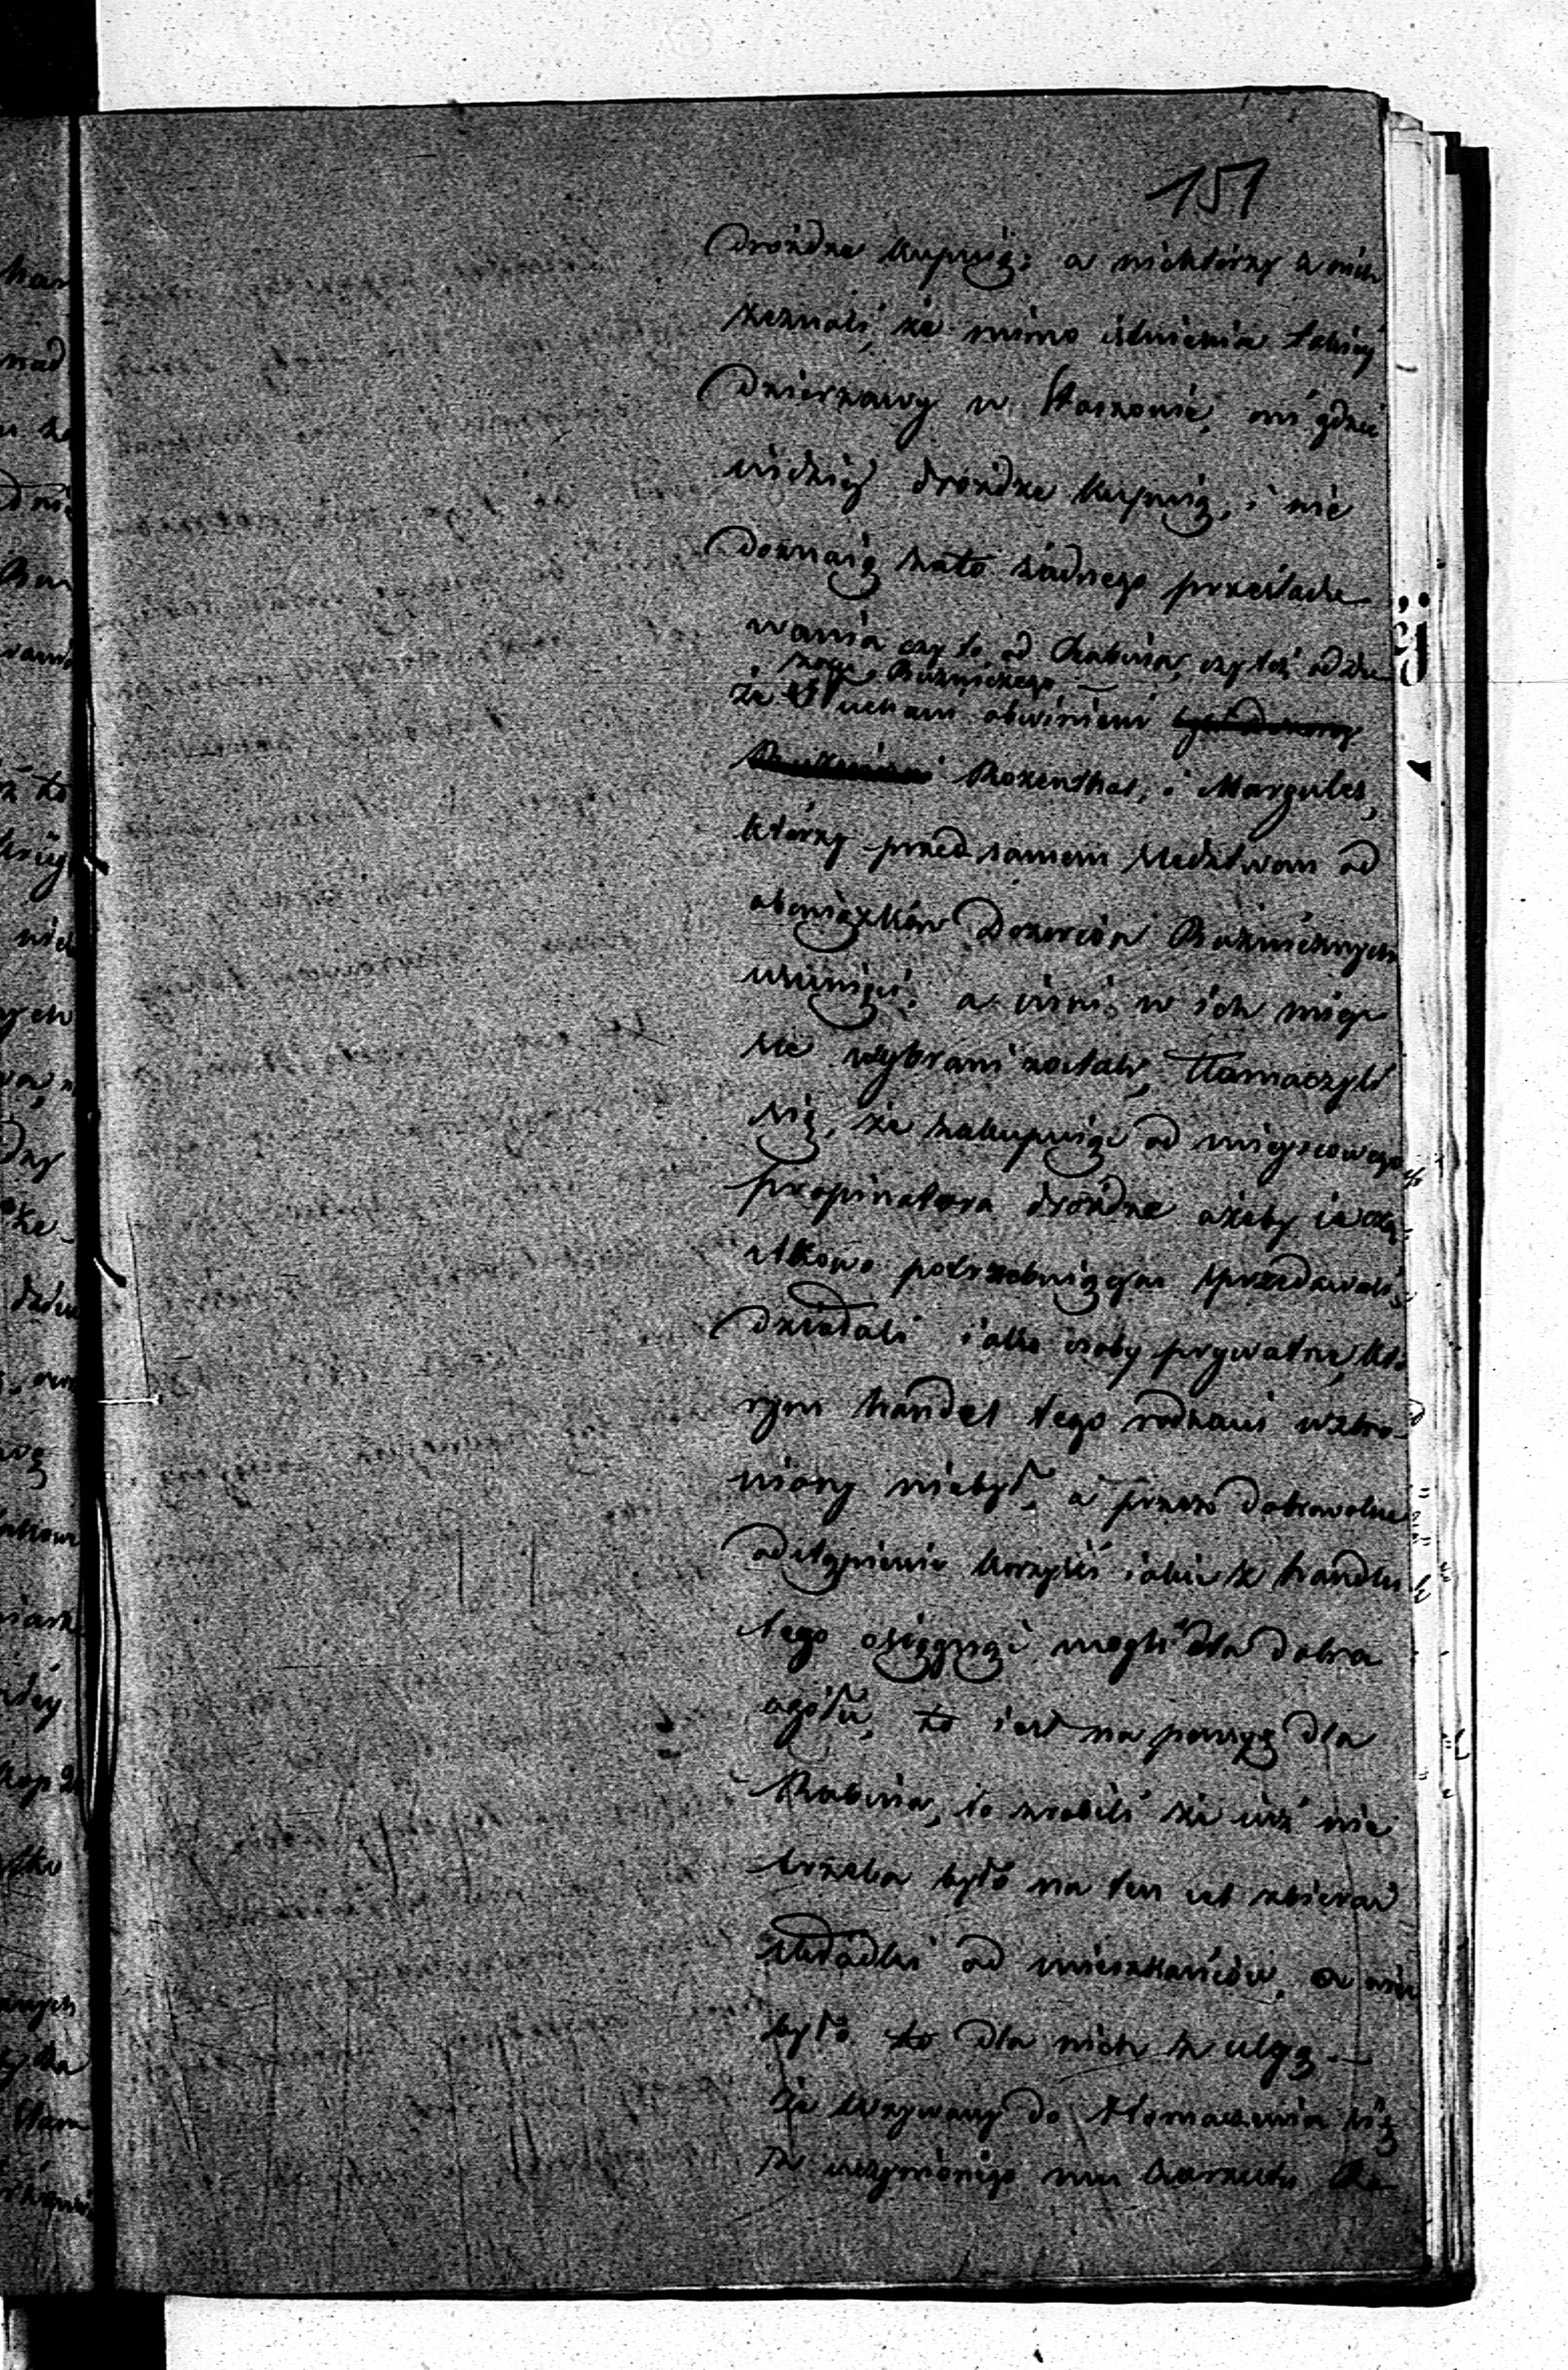 151
drożdże kupuią; a niektórzy z nich
zeznali, że mimo istnienia takiéj
Dzierżawy w Staszowie, ni gdzie
indziéj drożdże kupuią, i nie
doznaią zato żadnego prześlado
wania czy to od Rabina, czy też od Do
zoru Bużniczego —
że Słuchani obwinieni
Rozenthal, i Margules,
którzy przed samem śledztwem od
obowiązków Dozorców Bużnicznych
usunięci, a inni w ich miéj
sce wybrani zostali, tłomaczyli
się, że zakupuiąc od mieyscowego
propinatora drożdże ażeby ie czą
stkowo potrzebuiącym sprzedawali,
działali iako osoby prywatne, któ
rym handel tego rodzaiu wzbro-
niony niebył, a przez dobrowolne
odstąpienie korzyści iakie z handlu
tego osiągnąć mogli dla dobra
ogółu, to iest na pensyę dla
Rabina, to zrobili że iuż nie
trzeba było na ten cel zbierać
składki od mieszkańców, a więc
było to dla nich z ulgą —
że wzywany do tłomaczenia się
z uczynionego mu zarzutu Ra